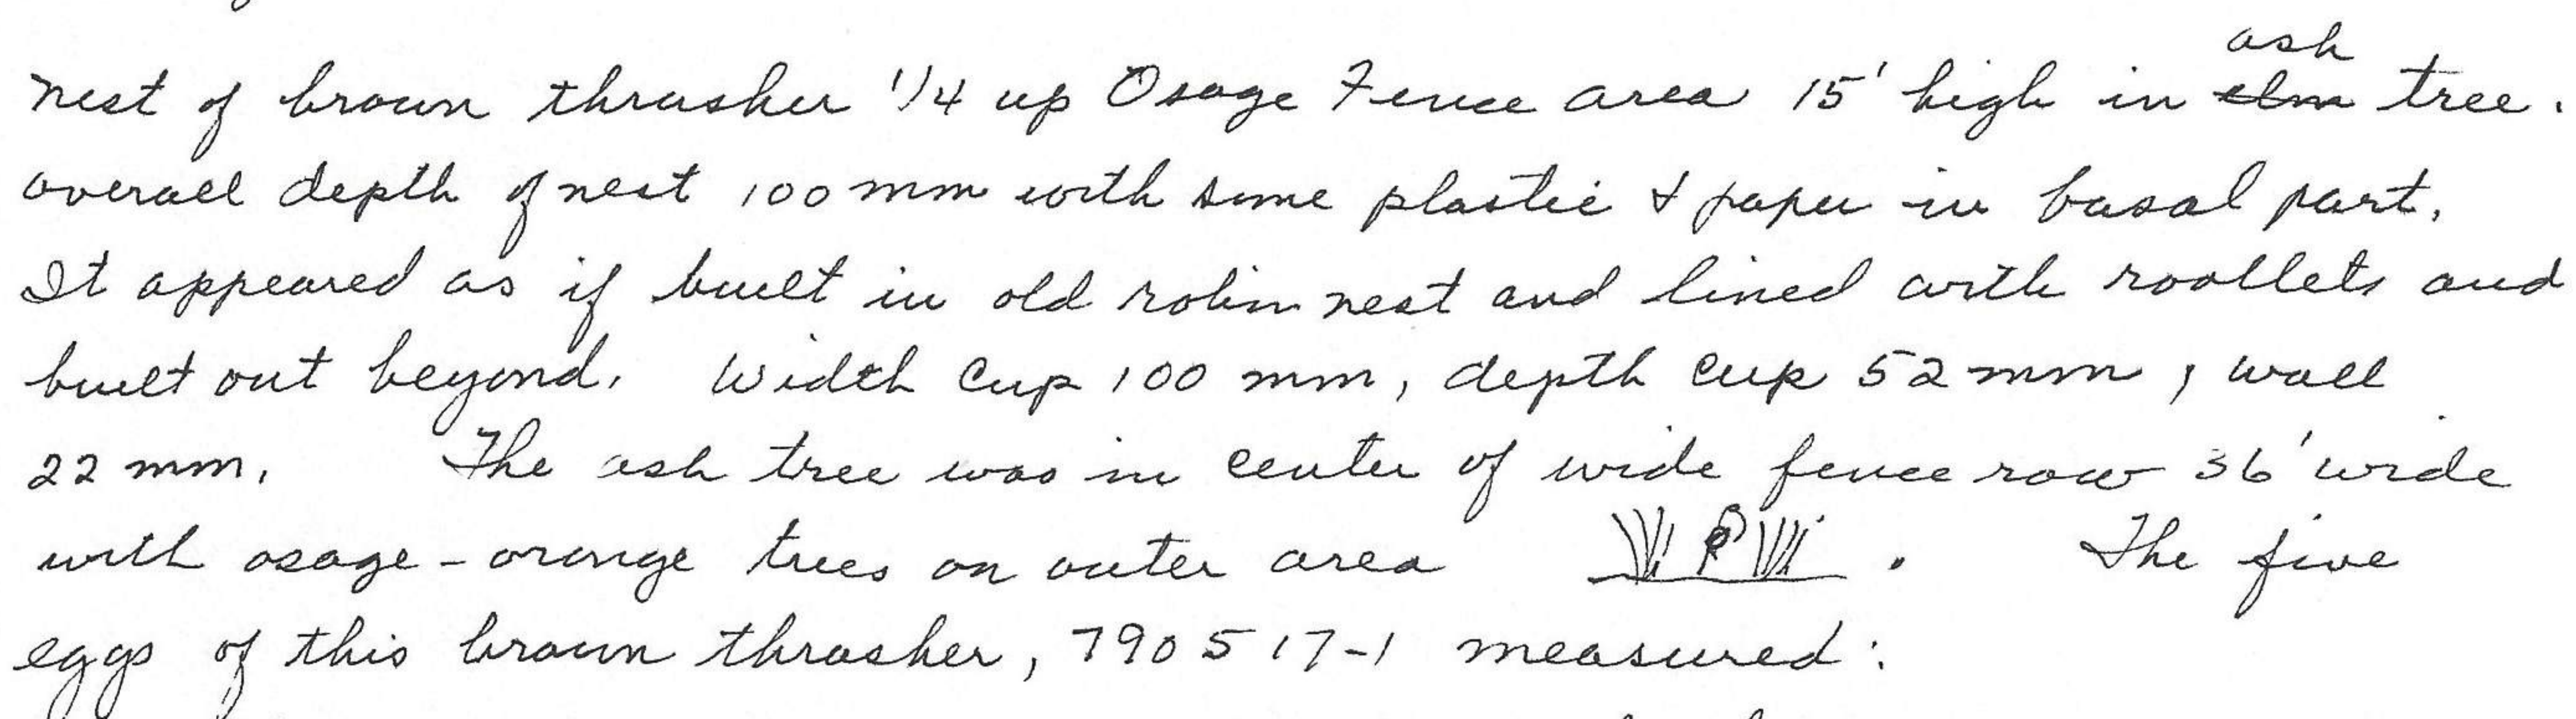 nest of brown thrasher 1/4 up Osage Fence area 15' high in ~~elm~~ ash tree.
overall depth of nest 100 mm with some plastic & paper in basal part.
It appeared as if built in old robin nest and lined with rootlets and
built out beyond. Width cup 100 mm, depth cup 52 mm, wall
22 mm. The ash tree was in center of wide fence row 36' wide
with osage-orange trees on outer area . The five
eggs of this brown thrasher, 790517-1 measured: